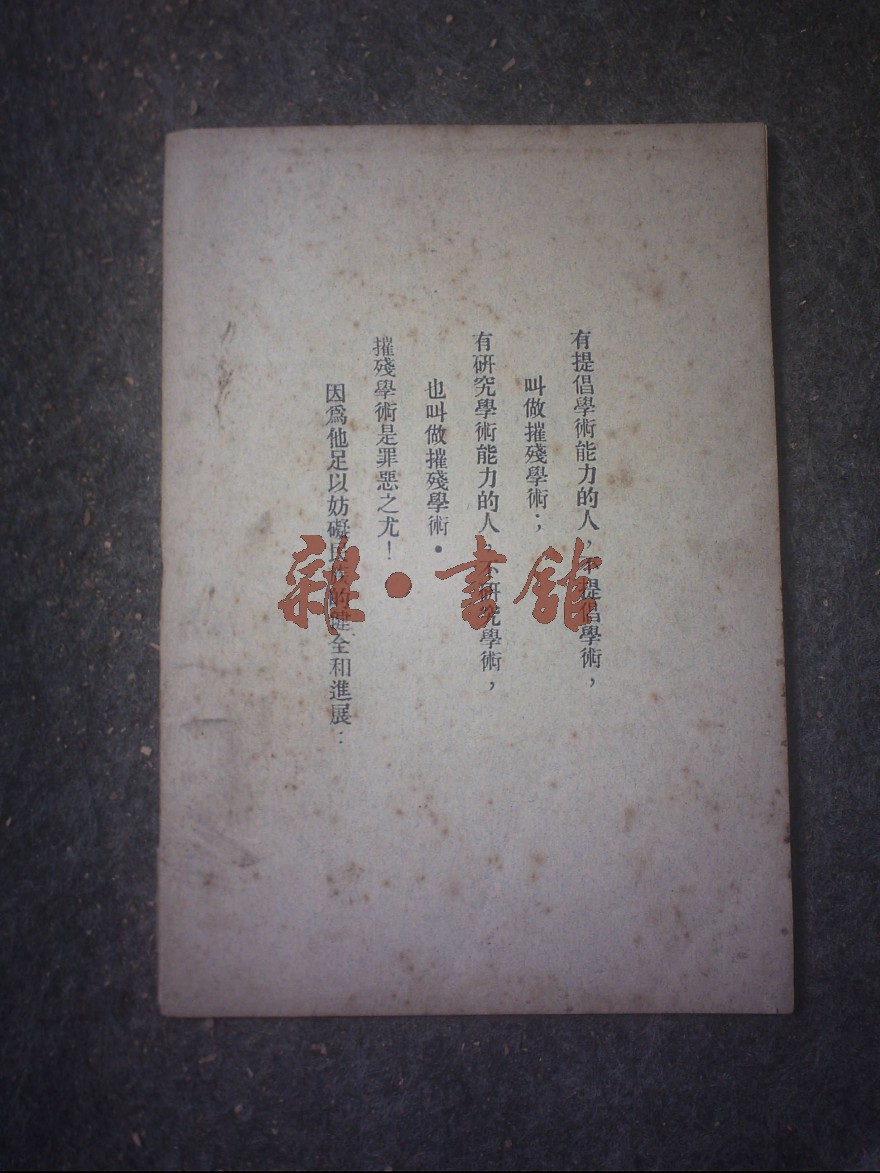 有提倡學術能力的人，不提倡學術，
叫做摧殘學術；
有研究學術能力的人，不研究學術，
也叫做摧殘學術．
摧殘學術是罪惡之尤！
因爲他足以妨礙民族的健全和進展：
雜·書館